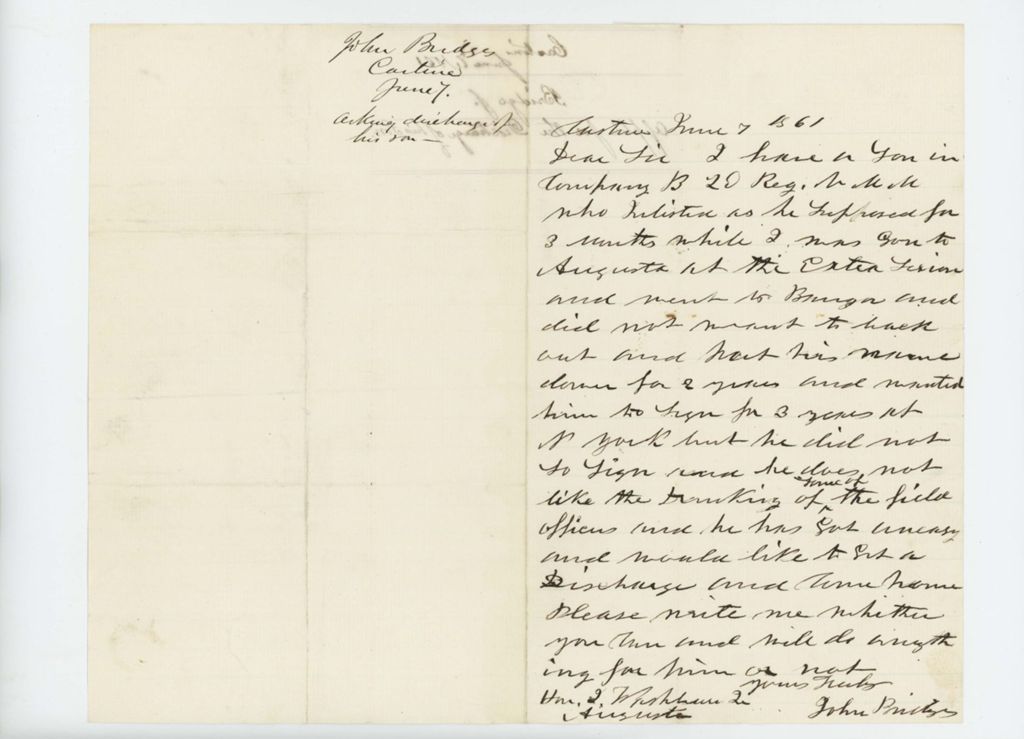 John Bridges
Castine
June 7.
Asking discharge of
his son —
Castine June 7 1861
Dear Sir I have a Son in
Company B 2D Reg. V M M
who Inlisted as he Supposed for
3 Months while I was Gon to
Augusta at the Extra Session
and went to Bangor and
did not want to back
out and put his name
down for 2 years and wanted
him to Sign for 3 years at
N York but he did not
So Sign and he does not
like the Drinking of some of the field
officers and he has Got uneasy
and would like to Get a
Discharge and Come home
Please write me whether
you Can and will do anyth
ing for him or not
yours Truly
John Bridges
Hon. I. Washburn Jr
Augusta